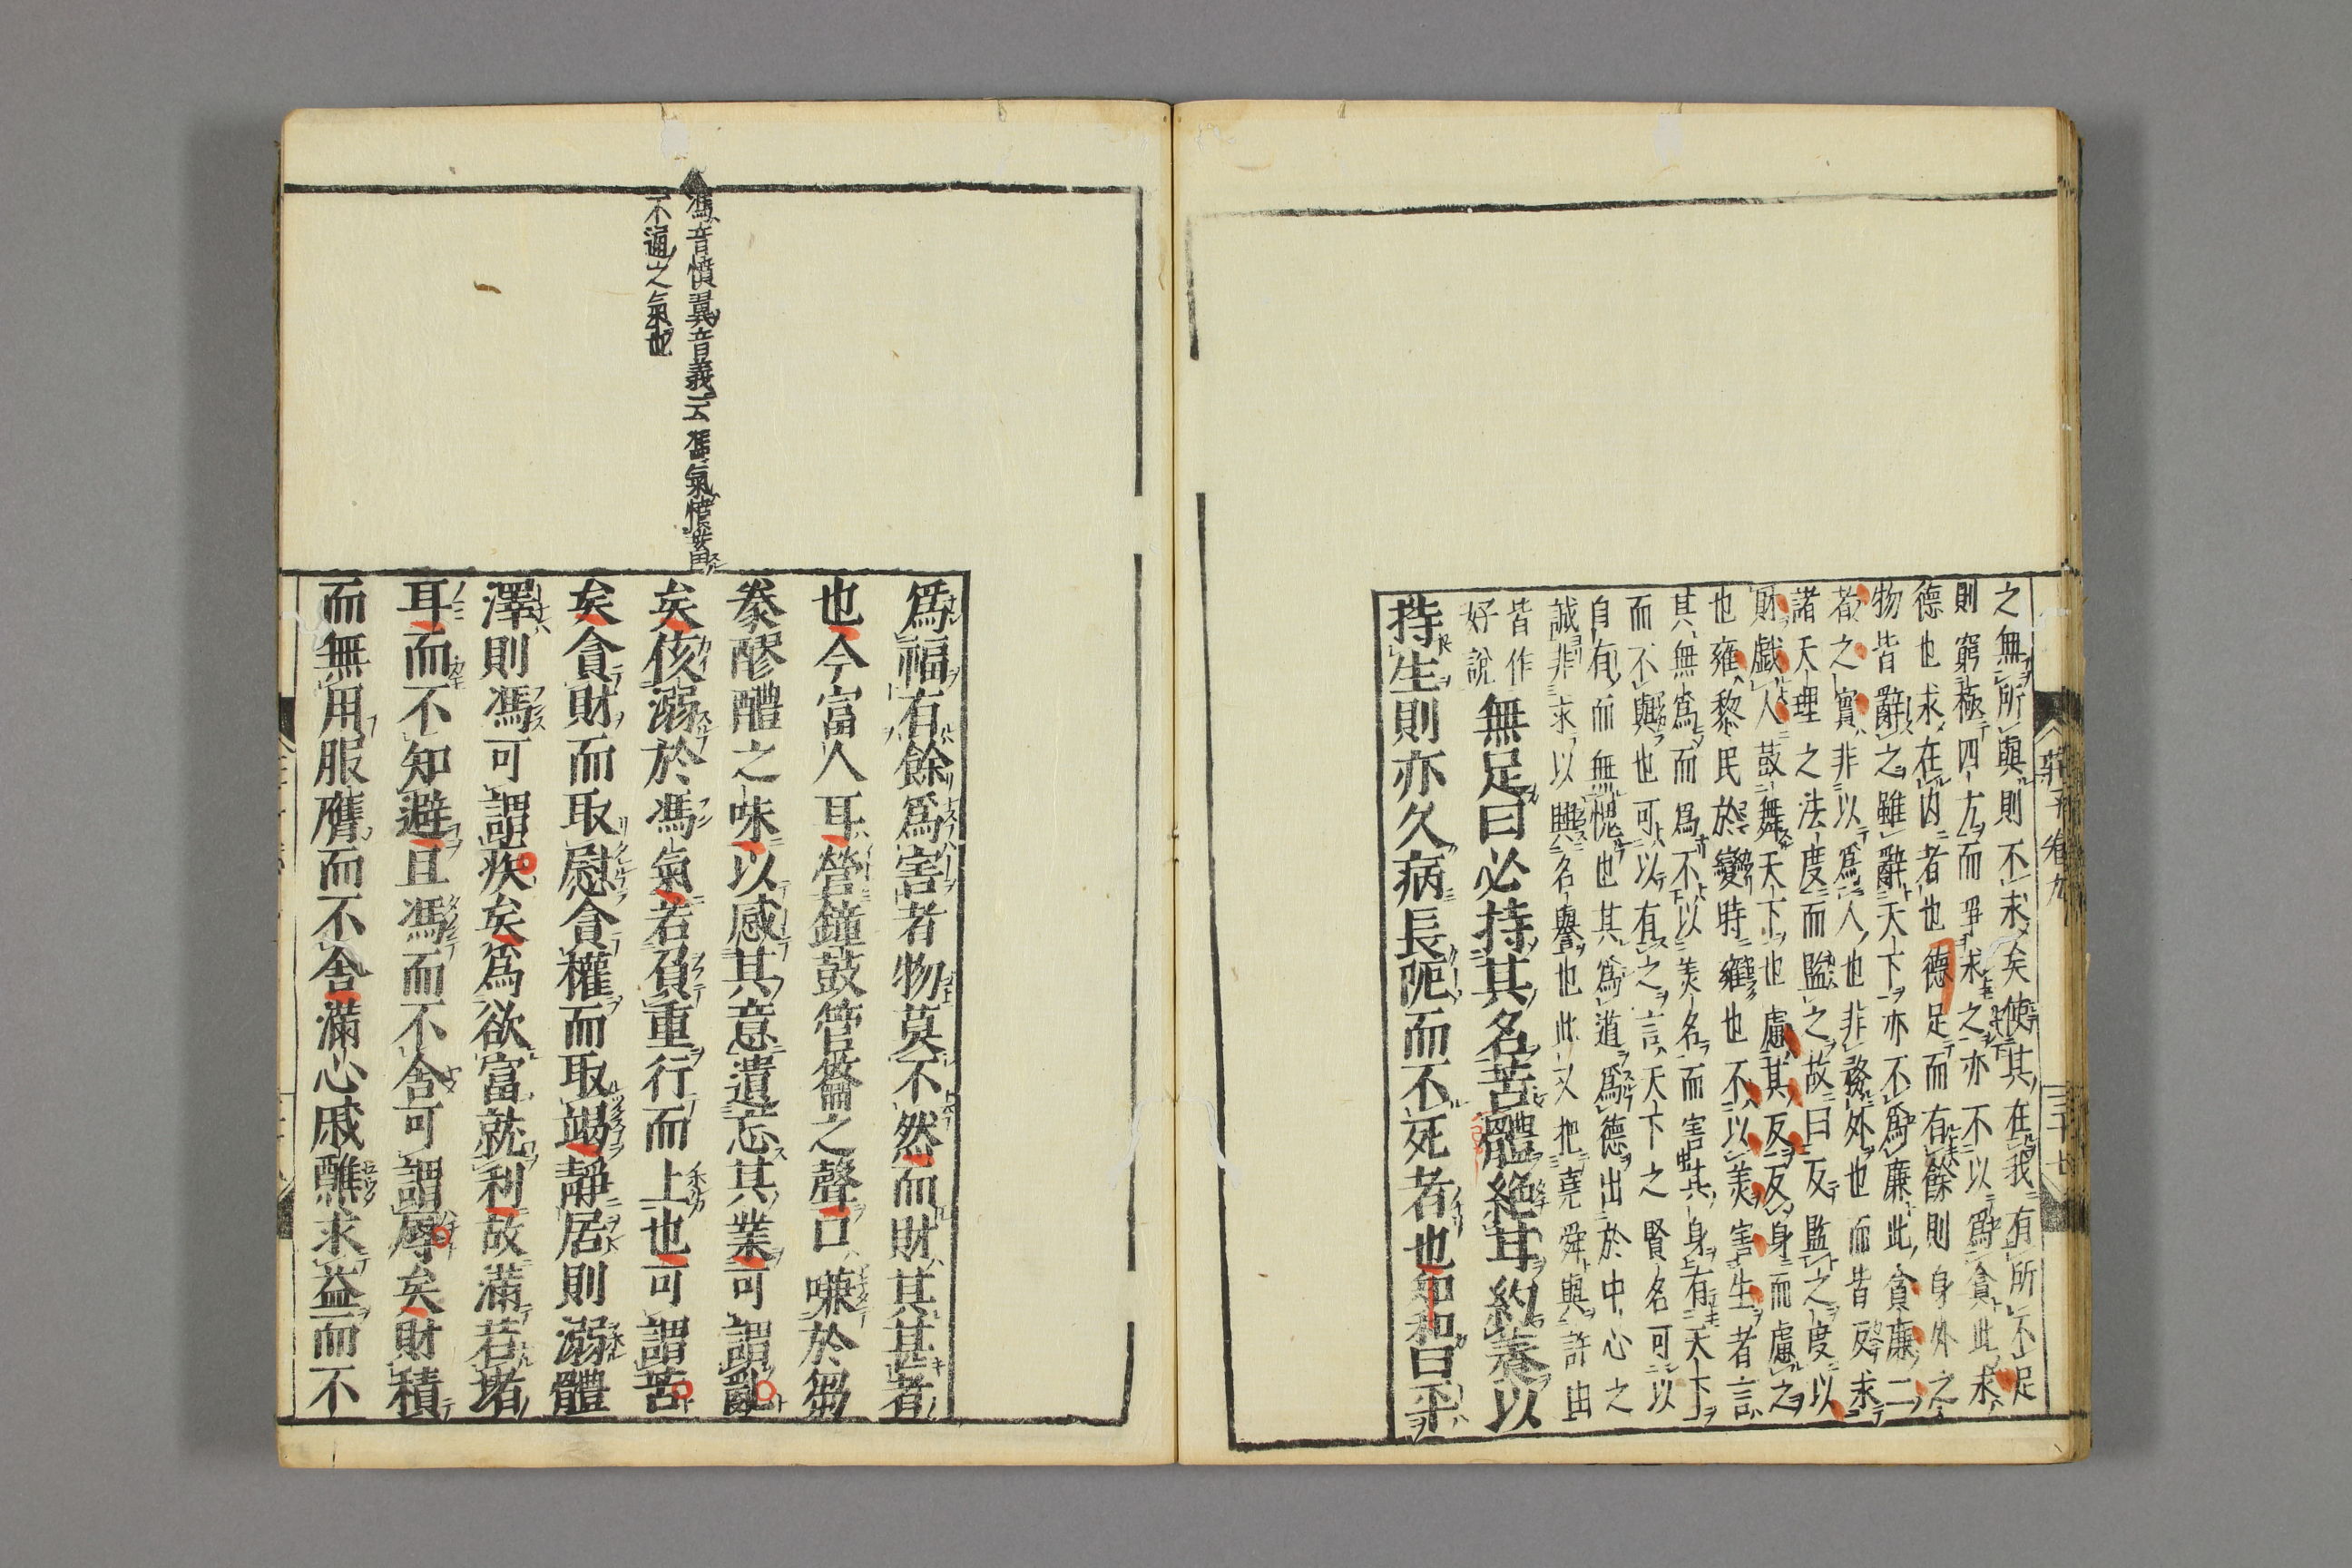 莊子卷九
三十七
之無所與則不求矣使其在我有所不足
則窮極四方而爭求之亦不以爲貪此求
德也求在内者也德足而有餘則身外之
物皆辭之雖辭天下亦不爲廉此貪廉二
者之實非以爲人也非務外也而皆反求
諸天理之法度而監之故曰反監之度以
財戲人鼓舞天下也慮其反反身而慮之
也雍黎民於變時雍也不以美害生者言
其無爲而爲不以美名而害其身有天下
而不與也可以有之言天下之賢名可以
自有而無愧也其爲道爲德出於中心之
誠非求以興名譽也此又把堯舜與許由
皆作
好說
無足曰必持其名苦體絶甘約養以
持生則亦久病長阨而不死者也知和曰平
馮音憤翼音義云馮氣憤畜
不通之氣也
爲福有餘爲害者物莫不然而財其甚者
也今富人耳營鐘鼓管籥之聲口嗛於芻
豢醪醴之味以感其意遺忘其業可謂亂
矣侅溺於馮氣若負重行而上也可謂苦
矣貪財而取慰貪權而取竭靜居則溺體
澤則馮可謂疾矣爲欲富就利故滿若堵
耳而不知避且馮而不舍可謂辱矣財積
而無用服膺而不舍滿心戚醮求益而不